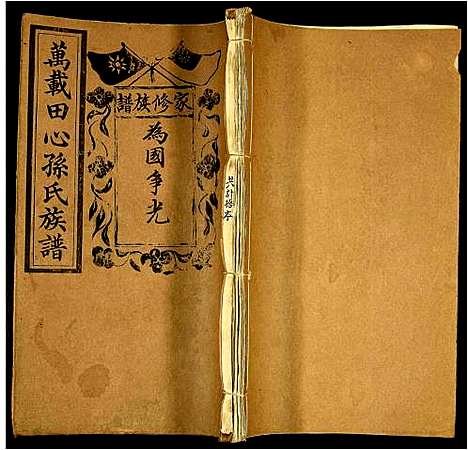 萬載田心孫氏族譜
家修族譜
為國爭光
共計拾本